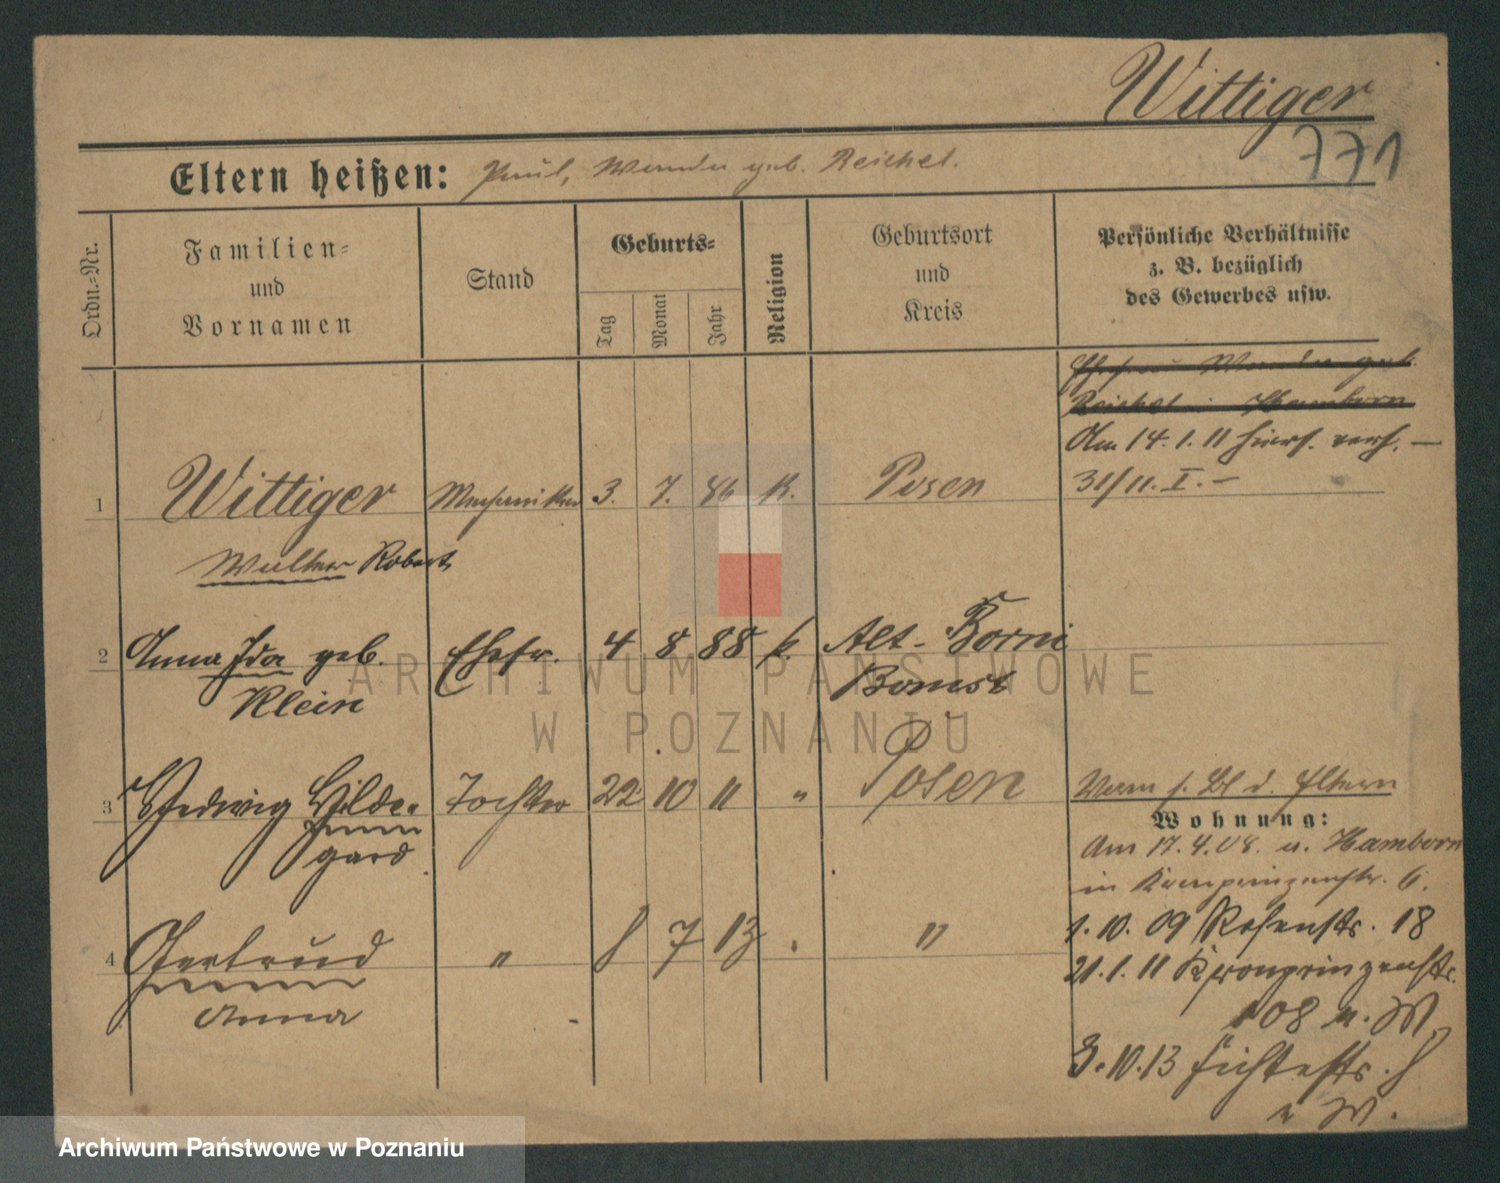 Wittiger
771
Eltern heißen: Paul, Wanda geb. Reichel.
Ordn.-Nr.
Familien-
und
Vornamen
Stand
Geburts-
Tag
Monat
Jahr
Religion
Geburtsort
und
Kreis
Persönliche Verhältnisse
z. B. bezüglich
des Gewerbes usw.
Ehefrau Wanda geb.
Reichel in Hamborn
Am 14.1.11 hiers. verh. —
31/11. I. –
1 Wittiger Mechaniker 3. 7. 86 k. Posen
Walter Robert
2 Anna Ida geb. Ehefr. 4 8 88 k. Alt-Borui
Klein Bomst
3 Hedwig Hilde- Tochter 22 10 11 " Posen
gard
4 Gertrud " 8 7 13 . "
Anna
d. Eltern
Wohnung:
Am 17.4.08. u. Hamborn
in Kronprinzenstr. 6.
1.10.09 Rosenstr. 18
21.1.11 Kronprinzenstr.
108 n. W.
3.10.13 Fichtestr. 8
n W.
ARCHIWUM PAŃSTWOWE
W POZNANIU
Archiwum Państwowe w Poznaniu